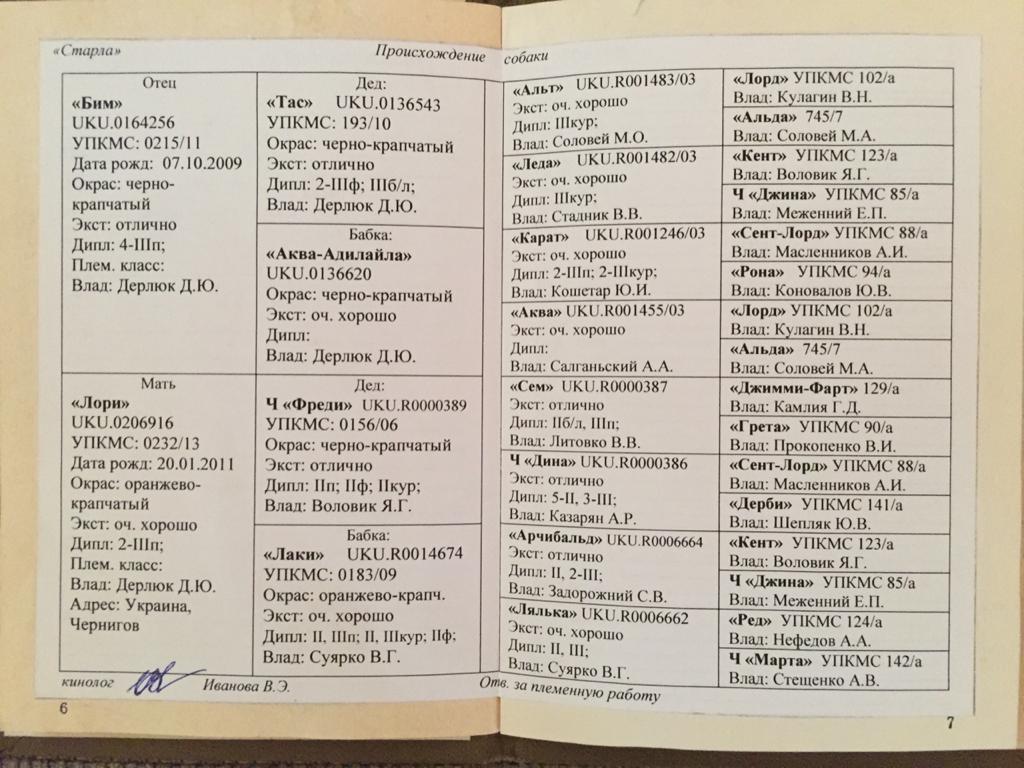 «Старла» Происхождение собаки
Отец
«Бим»
UKU.0164256
УПКМС: 0215/11
Дата рожд: 07.10.2009
Окрас: черно-
крапчатый
Экст: отлично
Дипл: 4-IIIп;
Плем. класс:
Влад: Дерлюк Д.Ю.
Мать
«Лори»
UKU.0206916
УПКМС: 0232/13
Дата рожд: 20.01.2011
Окрас: оранжево-
крапчатый
Экст: оч. хорошо
Дипл: 2-IIIп;
Плем. класс:
Влад: Дерлюк Д.Ю.
Адрес: Украина,
Чернигов
Дед:
«Тас» UKU.0136543
УПКМС: 193/10
Окрас: черно-крапчатый
Экст: отлично
Дипл: 2-IIIф; IIIб/л;
Влад: Дерлюк Д.Ю.
Бабка:
«Аква-Адилайла»
UKU.0136620
Окрас: черно-крапчатый
Экст: оч. хорошо
Дипл:
Влад: Дерлюк Д.Ю.
Дед:
Ч «Фреди» UKU.R0000389
УПКМС: 0156/06
Окрас: черно-крапчатый
Экст: отлично
Дипл: IIп; IIф; IIкур;
Влад: Воловик Я.Г.
Бабка:
«Лаки» UKU.R0014674
УПКМС: 0183/09
Окрас: оранжево-крапч.
Экст: оч. хорошо
Дипл: II, IIIп; II, IIIкур; IIф;
Влад: Суярко В.Г.
«Альт» UKU.R001483/03
Экст: оч. хорошо
Дипл: IIIкур;
Влад: Соловей М.О.
«Леда» UKU.R001482/03
Экст: оч. хорошо
Дипл: IIIкур;
Влад: Стадник В.В.
«Карат» UKU.R001246/03
Экст: оч. хорошо
Дипл: 2-IIIп; 2-IIIкур;
Влад: Кошетар Ю.И.
«Аква» UKU.R001455/03
Экст: оч. хорошо
Дипл:
Влад: Салганьский А.А.
«Сем» UKU.R0000387
Экст: отлично
Дипл: IIб/л, IIIп;
Влад: Литовко В.В.
Ч «Дина» UKU.R0000386
Экст: отлично
Дипл: 5-II, 3-III;
Влад: Казарян А.Р.
«Арчибальд» UKU.R0006664
Экст: отлично
Дипл: II, 2-III;
Влад: Задорожний С.В.
«Лялька» UKU.R0006662
Экст: оч. хорошо
Дипл: II, III;
Влад: Суярко В.Г.
«Лорд» УПКМС 102/а
Влад: Кулагин В.Н.
«Альда» 745/7
Влад: Соловей М.А.
«Кент» УПКМС 123/а
Влад: Воловик Я.Г.
Ч «Джина» УПКМС 85/а
Влад: Меженний Е.П.
«Сент-Лорд» УПКМС 88/а
Влад: Масленников А.И.
«Рона» УПКМС 94/а
Влад: Коновалов Ю.В.
«Лорд» УПКМС 102/а
Влад: Кулагин В.Н.
«Альда» 745/7
Влад: Соловей М.А.
«Джимми-Фарт» 129/а
Влад: Камлия Г.Д.
«Грета» УПКМС 90/а
Влад: Прокопенко В.И.
«Сент-Лорд» УПКМС 88/а
Влад: Масленников А.И.
«Дерби» УПКМС 141/а
Влад: Шепляк Ю.В.
«Кент» УПКМС 123/а
Влад: Воловик Я.Г.
Ч «Джина» УПКМС 85/а
Влад: Меженний Е.П.
«Ред» УПКМС 124/а
Влад: Нефедов А.А.
Ч «Марта» УПКМС 142/а
Влад: Стещенко А.В.
кинолог Иванова В.Э. Отв. за племенную работу
6
7